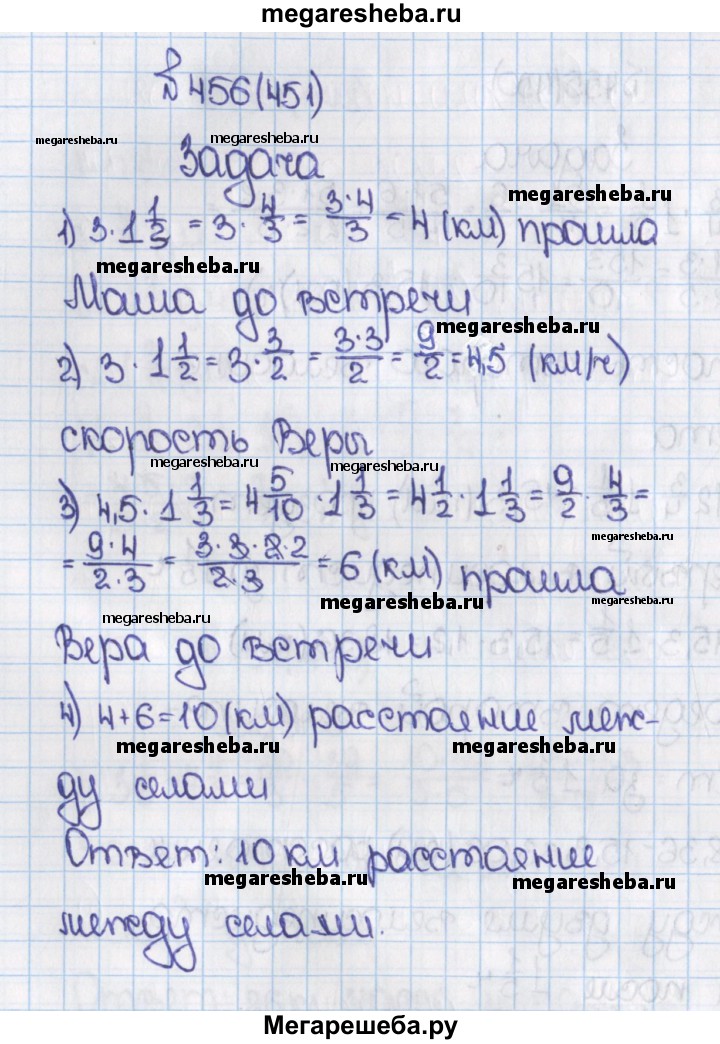 megaresheba.ru
№456(451)
megaresheba.ru
megaresheba.ru
Задача
megaresheba.ru
1) 3·1 1/3 = 3· 4/3 = 3·4/3 = 4 (км) прошла
megaresheba.ru
Маша до встречи
megaresheba.ru
2) 3·1 1/2 = 3· 3/2 = 3·3/2 = 9/2 = 4,5 (км/ч)
скорость Веры
megaresheba.ru
megaresheba.ru
3) 4,5·1 1/3 = 4 5/10 ·1 1/3 = 4 1/2 ·1 1/3 = 9/2 · 4/3 =
megaresheba.ru
= 9·4/2·3 = 3·3·2·2/2·3 = 6 (км) прошла
megaresheba.ru
megaresheba.ru
megaresheba.ru
Вера до встречи
4) 4+6=10(км) расстояние меж-
megaresheba.ru
megaresheba.ru
ду селами
Ответ: 10 км расстояние
megaresheba.ru
megaresheba.ru
между селами.
Мегарешеба.ру